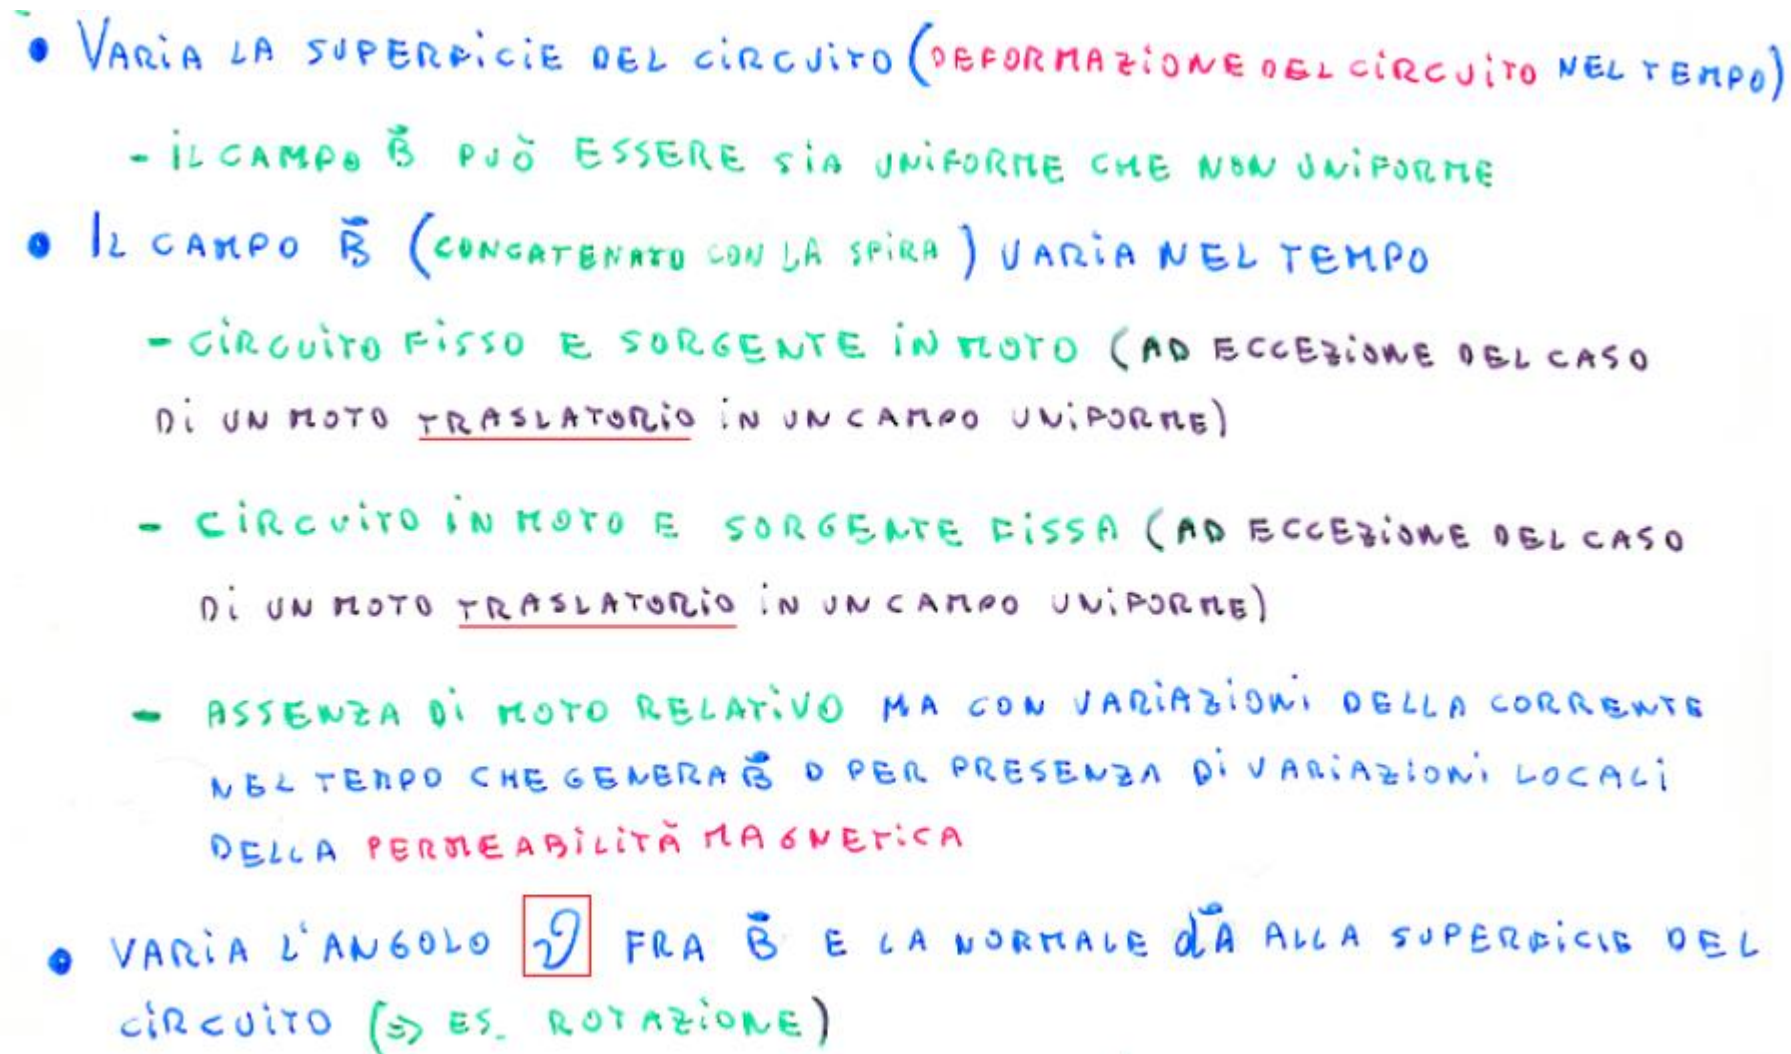 • VARIA LA SUPERFICIE DEL CIRCUITO (DEFORMAZIONE DEL CIRCUITO NEL TEMPO)
- IL CAMPO B⃗ PUÒ ESSERE SIA UNIFORME CHE NON UNIFORME
• IL CAMPO B⃗ (CONCATENATO CON LA SPIRA) VARIA NEL TEMPO
- CIRCUITO FISSO E SORGENTE IN MOTO (AD ECCEZIONE DEL CASO
DI UN MOTO TRASLATORIO IN UN CAMPO UNIFORME)
- CIRCUITO IN MOTO E SORGENTE FISSA (AD ECCEZIONE DEL CASO
DI UN MOTO TRASLATORIO IN UN CAMPO UNIFORME)
- ASSENZA DI MOTO RELATIVO MA CON VARIAZIONI DELLA CORRENTE
NEL TEMPO CHE GENERA B⃗ O PER PRESENZA DI VARIAZIONI LOCALI
DELLA PERMEABILITÀ MAGNETICA
• VARIA L'ANGOLO ϑ FRA B⃗ E LA NORMALE dA⃗ ALLA SUPERFICIE DEL
CIRCUITO (⇒ ES. ROTAZIONE)